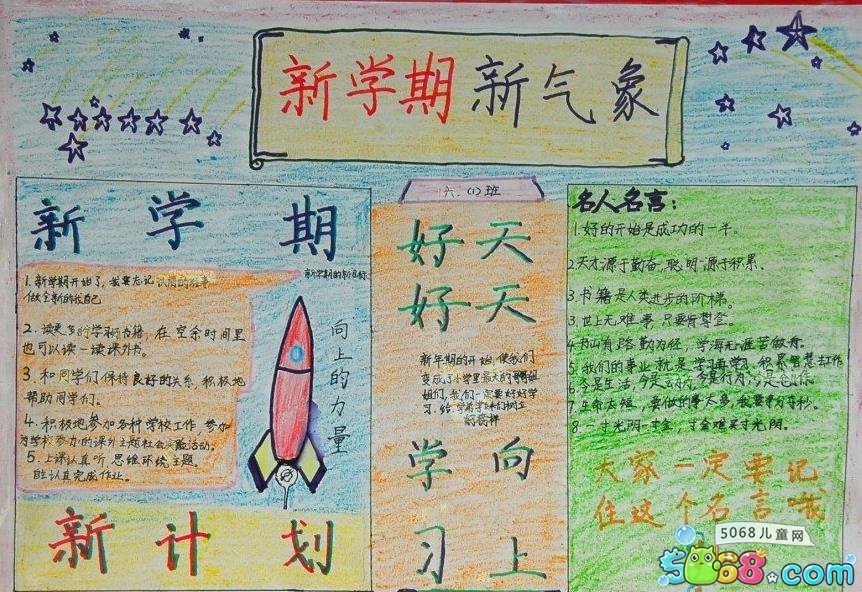 新学期新气象
新学期
新学期的新目标
1.新学期开始了,我要忘记以前的往事
做全新的我自己
2.读更多的学习书籍,在空余时间里
也可以读一读课外书。
3.和同学们保持良好的关系,积极地
帮助同学们。
4.积极地参加各种学校工作,参加
为学校参办的课外主题社会实验活动。
5.上课认真听,思维环绕主题。
自认真完成作业。
向上的力量
新计划
六.(1)班
好天
好天
新年期的开始,使我们
变成了小学里最大的哥哥姐
姐们,我们一定要好好学
习.给学弟学妹们树立
的榜样
学向
习上
名人名言:
1.好的开始是成功的一半。
2.天才源于勤奋,聪明源于积累、
3.书籍是人类进步的阶梯。
3.世上无难事,只要肯登登。
4.书山有路勤为径,学海无涯苦做舟。
5.我们的事业就是学习再学习,积累智慧去作
7.生命太短,要做的事太多,我要争分夺秒。
8.一寸光阴一寸金,寸金难买寸光阴。
大家一定要记
住这个名言哦
5068儿童网
5068.com